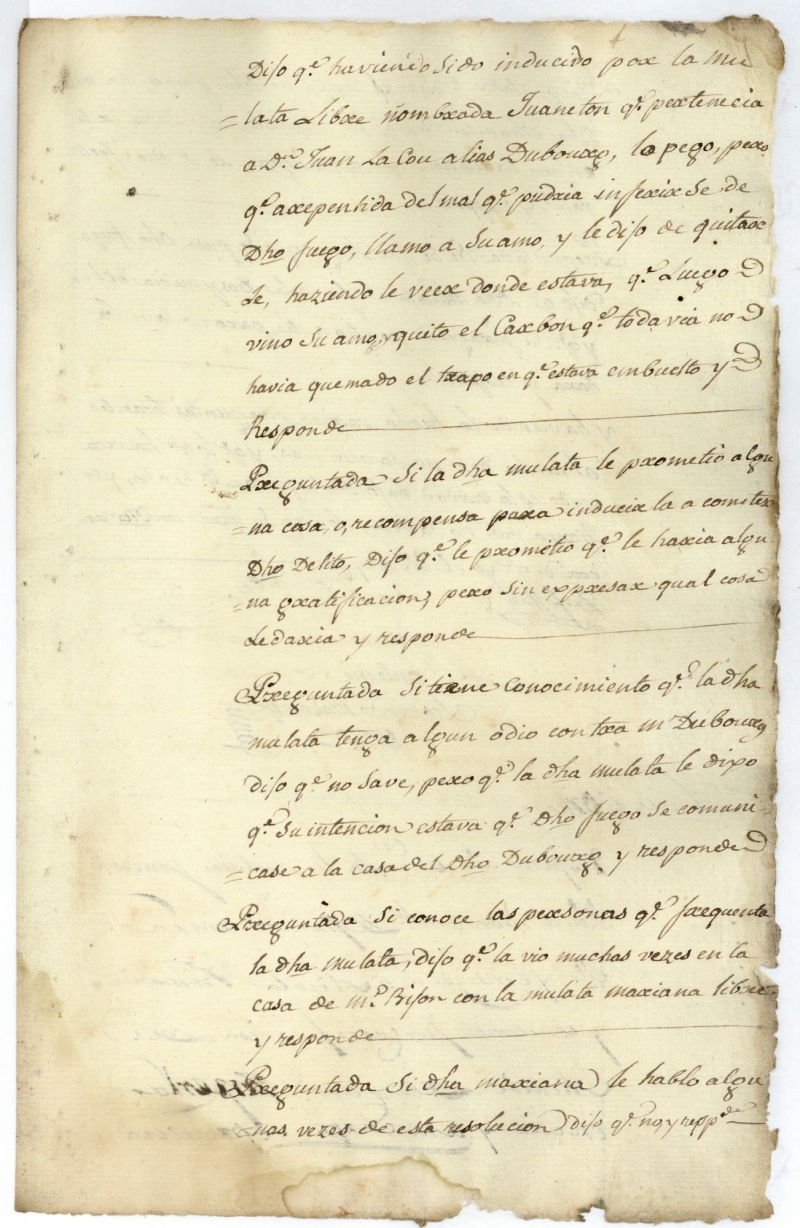 Dijo q.e haviendo Sido inducido por la mu
=lata Libre nombrada Juaneton q.e pertenecia
a D.n Juan La Cou alias Dubourg, lo pego, pero
q.e arepentida del mal q.e pudria inferirse de
Dho fuego, llamo a Su amo, y le dijo de quitar
le, haziendo le veer donde estava, q.e Luego
vino Su amo, y quito el Carbon q.e todavia no
havia quemado el trapo en q.e estava embuelto y
Responde
Preguntada Si la dha mulata le prometio algu
=na cosa, o, recompensa para inducir la a cometer
Dho Delito, Dijo q.e le prometio q.e le haria algu
=na gratificacion, pero Sin expresar qual cosa
Le daria y responde
Preguntada Si tiene Conocimiento q.e la dha
mulata tenga algun odio contra m.r Dubourg
dijo q.e no Save, pero q.e la dha mulata le dixo
q.e Su intencion estava q.e Dho fuego Se comuni
=case a la casa del Dho Dubourg, y responde
Preguntada Si conoce las personas q.e frequenta
la dha mulata, dijo q.e la vio muchas vezes en la
casa de m.r Bison con la mulata mariana libre
y responde
Preguntada Si dha mariana le hablo algu
nas vezes de esta resolucion dijo q.e no, y repp.de